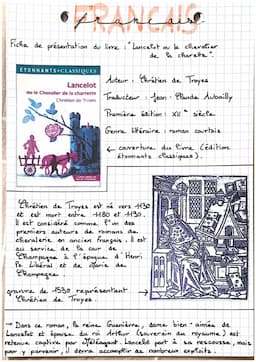 FRANÇAIS
français
Fiche de présentation du livre : "Lancelot ou le chevalier
de la charette".
ÉTONNANTS • CLASSIQUES
Lancelot
ou le Chevalier de la charrette
Chrétien de Troyes
Auteur : Chrétien de Troyes
Traducteur : Jean-Claude Aubailly
Première édition : XIIe siècle
Genre littéraire : roman courtois
couverture du livre (édition
étonnants classiques).
Chrétien de Troyes est né vers 1130
et est mort entre 1180 et 1190.
Il est considéré comme l'un des
premiers auteurs de romans de
chevalerie en ancien français. Il est
au service de la cour de
Champagne à l'époque d'Henri
Ier Libéral et de Marie de
Champagne.
gravure de 1530 représentant
Chrétien de Troyes.
→ Dans ce roman, la reine Guenièvre, dame bien-aimée de
Lancelot et épouse du roi Arthur (souverain du royaume) est
retenue captive par Méléagant. Lancelot part à sa rescousse, mais
pour y parvenir, il devra accomplir de nombreux exploits.